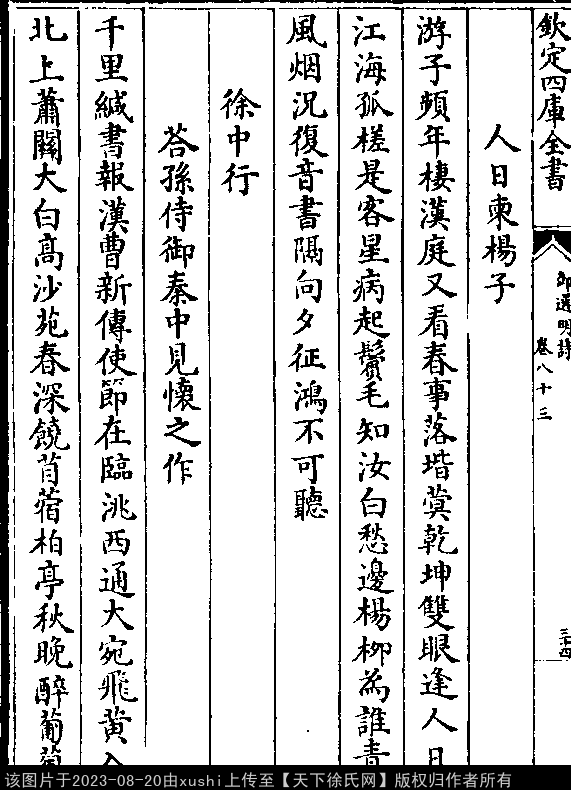 欽定四庫全書
御選明詩
卷八十三
三十四
人日柬楊子
游子頻年棲漢庭又看春事落堦蓂乾坤雙眼逢人日
江海孤槎是客星病起鬢毛知汝白愁邊楊柳為誰青
風烟況復音書隔向夕征鴻不可聽
徐中行
荅孫侍御秦中見懷之作
千里緘書報漢曹新傳使節在臨洮西通大宛飛黃入
北上蕭關大白高沙苑春深饒苜蓿柏亭秋晚醉葡萄
该图片于2023-08-20由xushi上传至【天下徐氏网】版权归作者所有